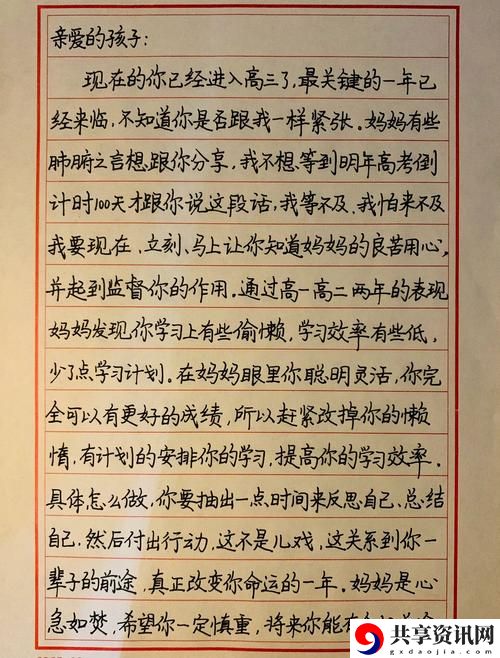 亲爱的孩子：
现在的你已经进入高三了，最关键的一年已
经来临，不知道你是否跟我一样紧张。妈妈有些
肺腑之言想跟你分享，我不想等到明年高考倒
计时100天才跟你说这段话，我等不及、我怕来不及
我要现在、立刻、马上让你知道妈妈的良苦用心，
并起到监督你的作用。通过高一高二两年的表现
妈妈发现你学习上有些偷懒，学习效率有些低，
少了点学习计划。在妈妈眼里你聪明灵活，你完
全可以有更好的成绩，所以赶紧改掉你的懒
惰，有计划的安排你的学习，提高你的学习效率。
具体怎么做，你要抽出一点时间来反思自己、总结
自己.然后付出行动，这不是儿戏，这关系到你一
辈子的前途，真正改变你命运的一年。妈妈是心
急如焚，希望你一定慎重，将来你能
共享资讯网
gxdaojia.com